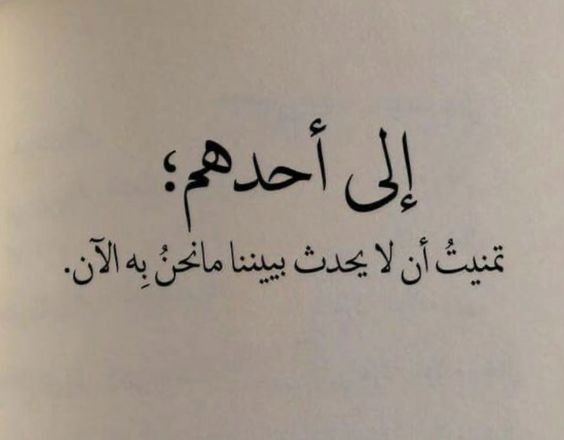 إلى أحدهم؛
تمنيتُ أن لا يحدث بييننا مانحنُ بِه الآن.